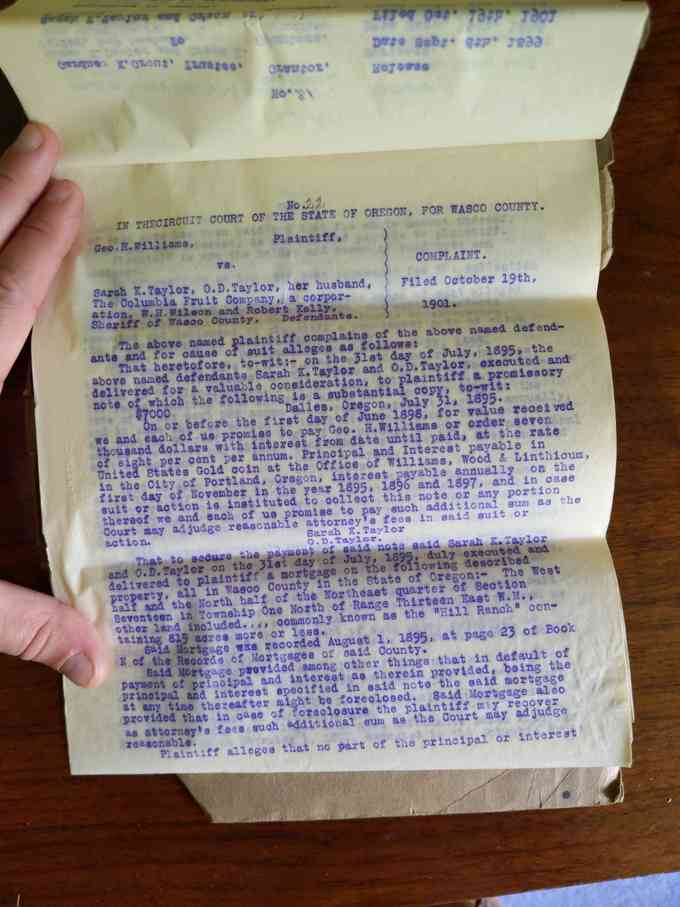 Sarah K.Taylor and Orson
Filed Oct. 19th, 1901
To
Date Sept. 8th, 1899
Gardner K.Grout, Trustee, Grantor,
Release
No.21
No 22
IN THECIRCUIT COURT OF THE STATE OF OREGON, FOR WASCO COUNTY.
Geo.H.Williams, Plaintiff,
vs. COMPLAINT.
Sarah K.Taylor, O.D.Taylor, her husband, Filed October 19th,
The Columbia Fruit Company, a corpor-
ation, W.H.Wilson and Robert Kelly, 1901.
Sheriff of Wasco County. Defendants.
The above named plaintiff complains of the above named defend-
ants and for cause of suit alleges as follows:
That heretofore, to-wit:- on the 31st day of July, 1895, the
above named defendants Sarah K.Taylor and O.D.Taylor, executed and
delivered for a valuable consideration, to plaintiff a promissory
note of which the following is a substantial copy, to-wit:
$7000 Dalles, Oregon, July 31, 1895.
On or before the first day of June 1898, for value received
we and each of us promise to pay Geo. H.Williams or order seven
thousand dollars with interest from date until paid, at the rate
of eight per cent per annum. Principal and Interest payable in
United States Gold coin at the Office of Williams, Wood & Linthicum,
in the City of Portland, Oregon, interest payable annually on the
first day of November in the year 1895, 1896 and 1897, and in case
suit or action is instituted to collect this note or any portion
thereof we and each of us promise to pay such additional sum as the
Court may adjudge reasonable attorney's fees in said suit or
action. Sarah K.Taylor
O.D.Taylor.
That to secure the payment of said note said Sarah K.Taylor
and O.D.Taylor on the 31st day of July, 1895, duly executed and
delivered to plaintiff a mortgage on the following described
property, all in Wasco County in the State of Oregon:- The West
half and the North half of the Northeast quarter of Section
Seventeen in Township One North of Range Thirteen East W.M.,
other land included.... commonly known as the "Hill Ranch" con-
taining 815 acres more or less.
Said Mortgage was recorded August 1, 1895, at page 23 of Book
K of the Records of Mortgages of said County.
Said Mortgage provided among other things that in default of
payment of principal and interest as therein provided, being the
principal and interest specified in said note the said mortgage
at any time thereafter might be foreclosed. Said Mortgage also
provided that in case of foreclosure the plaintiff may recover
as attorney's fees such additional sum as the Court may adjudge
reasonable.
Plaintiff alleges that no part of the principal or interest